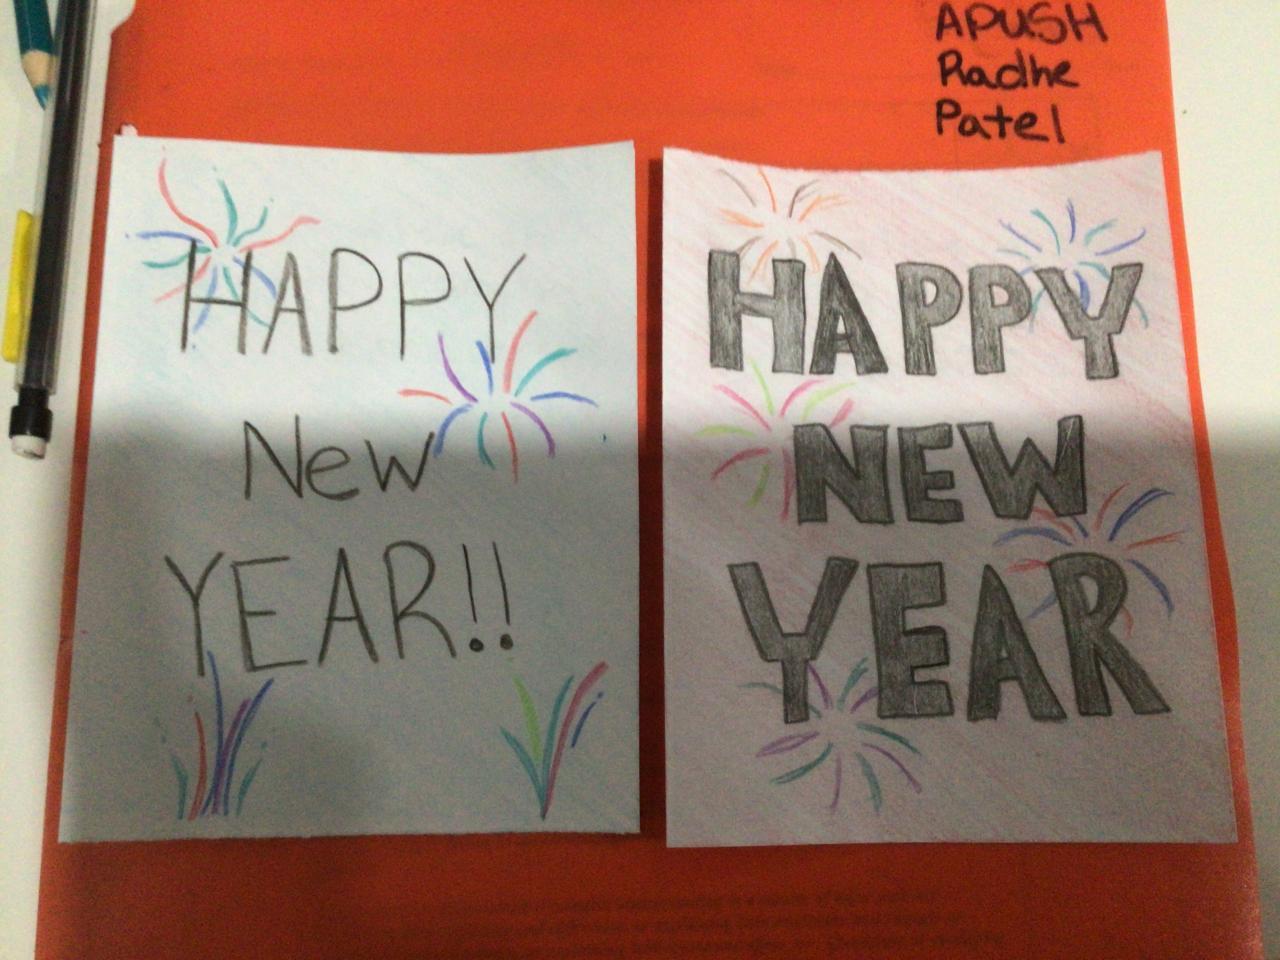 APUSH
Radhe
Patel
HAPPY
New
YEAR!!
HAPPY
NEW
YEAR